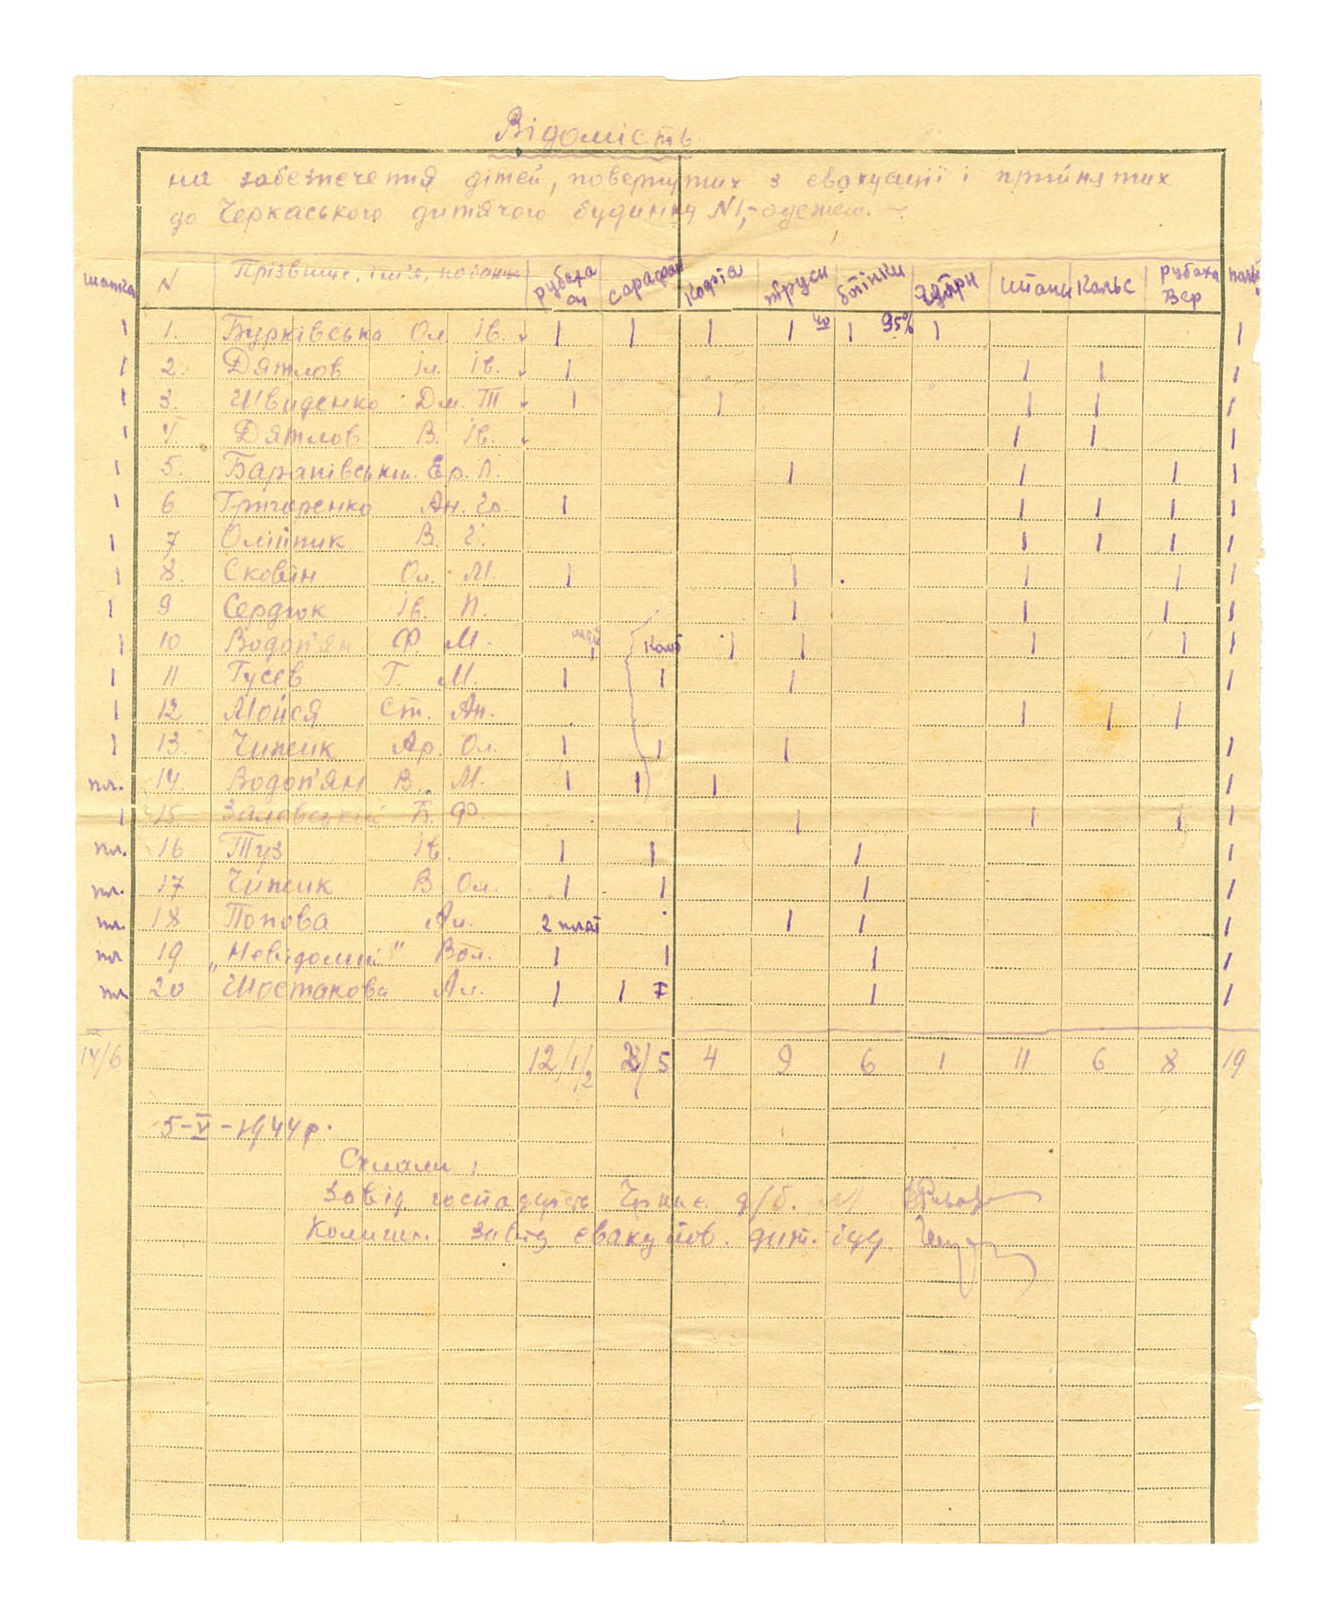 Відомість
на забезпечення дітей, повернутих з евакуації і прийнятих
до Черкаського дитячого будинку N1,- одежею. -
шапка N Прізвище, ім'я, побатьк рубаха сарафан Кофта труси ботінки штани Кальс рубаха Вер паль
1 1. Бурківська Ол Ів. 1 1 1 1 40 1 95% 1 1
1 2. Дятлов Іл. Ів. 1 1 1 1
1 3. Швиденко Дм. Т 1 1 1 1 1
1 4. Дятлов В. Ів. 1 1 1
1 5. Барановський. Єр. П. 1 1 1 1
1 6 Григоренко Ан. Гр. 1 1 1 1 1
1 7 Олійник В. Г. 1 1 1 1
1 8. Сковін Ол. М. 1 1 1 1 1
1 9 Сердюк Ів. П. 1 1 1 1
1 10 Водоп'ян Ф. М. 1 1 1 1 1 1
1 11 Гусєв Г. М. 1 1 1 1
1 12. Мойся Ст. Ан. 1 1 1
1 13. Чижик Ар. Ол. 1 1 1 1
пл. 14. Водоп'ян В. М. 1 1 1 1
1 15 Б. Ф. 1 1 1 1
пл. 16 Туз Ів. 1 1 1 1
пл. 17 Чижик В Ол. 1 1 1 1
пл. 18 Попова Ал. 2 плат 1 1 1
пл 19 „Невідомий" Вол. 1 1 1 1
пл 20 Шостакова Ал. 1 1 1 1
14/6 12/1/2 /5 4 9 6 1 11 6 8 19
5-V-1944 р.
Склали:
Завід. госпадарст. Черкас. д/б.
Колишн. завід. евакуйов. дит. буд.